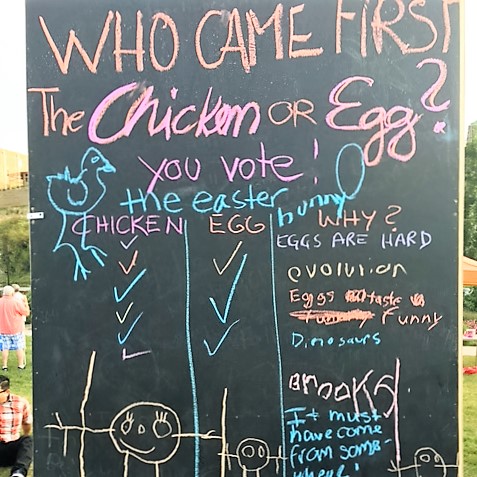 WHO CAME FIRST
The Chicken OR Egg?
you vote!
the easter bunny
CHICKEN EGG WHY?
EGGS ARE HARD
evolution
Eggs taste
Funny
Dinosaurs
Brooks
It must
have come
from some-
where!